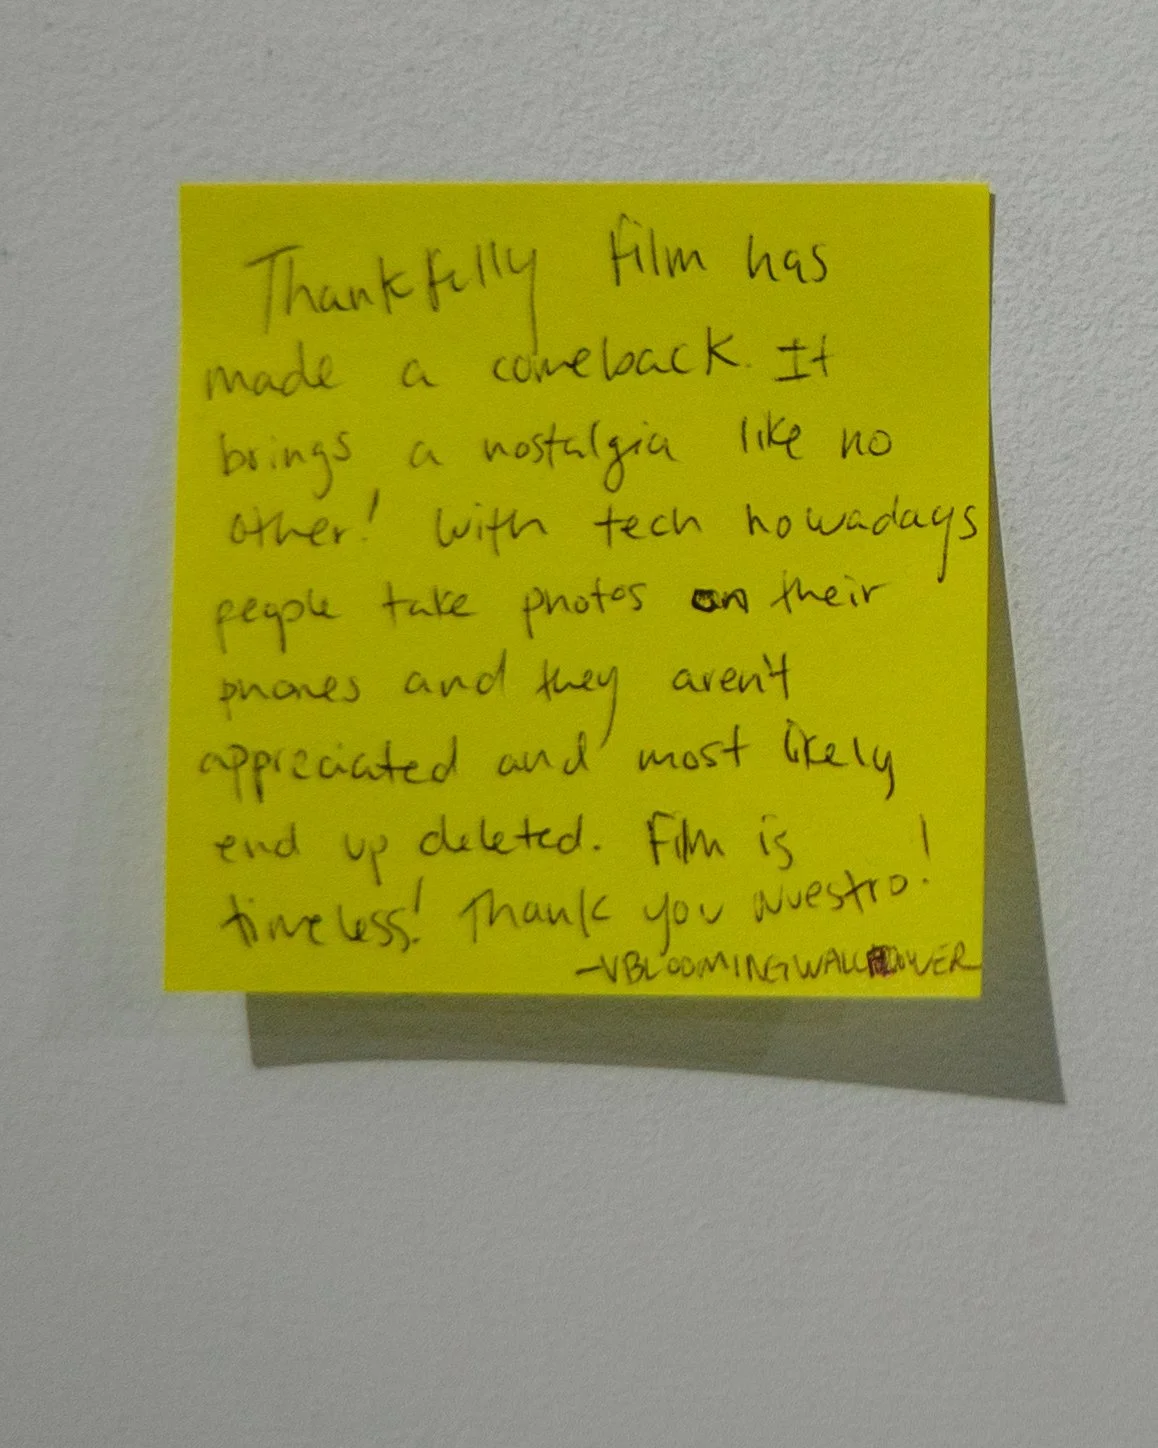 Thankfully film has
made a comeback. It
brings a nostalgia like no
other! With tech nowadays
people take photos on their
phones and they aren't
appreciated and most likely
end up deleted. Film is
timeless! Thank you Nuestro!
-VBLOOMINGWALLFLOWER